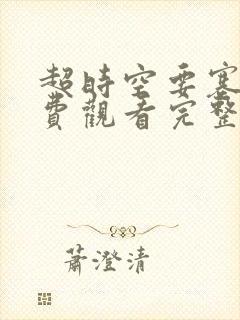 超時空要塞
費觀看完整
蕭澄清